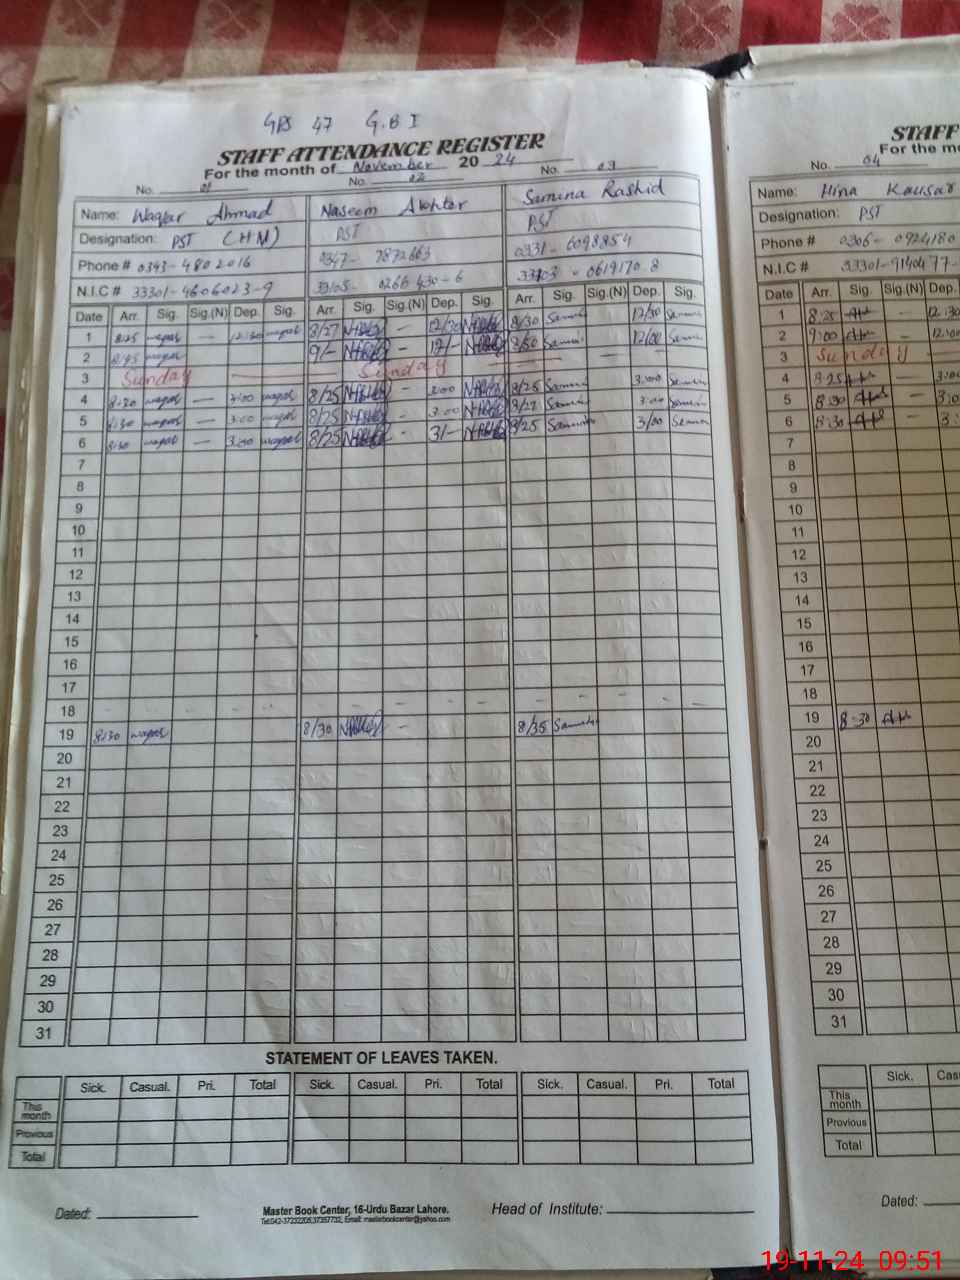 GPS 47 G.B I
STAFF ATTENDANCE REGISTER
For the month of November 20 24
No. 01 No. 02 No. 03
Name: Waqar Ahmad Naseem Akhter Samina Rashid
Designation: PST (HM) PST PST
Phone # 0343-4802016 0347- 7872663 0331-6098854
N.I.C # 33301-4606023-9 0619170-8
Date Arr. Sig. Sig.(N) Dep. Sig. Arr. Sig. Sig.(N) Dep. Sig. Arr. Sig. Sig.(N) Dep. Sig.
1 8:25 waqar — 12:30 waqar 8/27 - 12/30 8/30 Samina 12/30 Samina
2 8:45 waqar 9/- - 12/- 8/50 Samina 12/00 Samina
3 Sunday Sunday
4 8:30 waqar — 3:00 waqar 8/25 - 3:00 8/25 Samina 3:00 Samina
5 8:30 waqar — 3:00 waqar 8/25 - 3:00 8/27 Samina 3:00 Samina
6 8:30 waqar — 3:00 waqar 8/25 - 3/- 8/25 Samina 3/00 Samina
7
8
9
10
11
12
13
14
15
16
17
18
19 8:30 waqar 8/30 - 8/35 Samina
20
21
22
23
24
25
26
27
28
29
30
31
STATEMENT OF LEAVES TAKEN.
Sick. Casual. Pri. Total Sick. Casual. Pri. Total Sick. Casual. Pri. Total
This month
Previous
Total
Dated: Master Book Center, 16-Urdu Bazar Lahore. Head of Institute:
Tel:042-37232205,37357732, Email: masterbookcenter@yahoo.com
STAFF
For the mo
No. 04
Name: Hina Kausar
Designation: PST
Phone # 0306- 0924180
N.I.C # 33301-9140477-
Date Arr. Sig. Sig.(N) Dep.
1 8:25 — 12:30
2 9:00 — 12:00
3 Sunday
4 8:25 — 3:00
5 8:30 — 3:0
6 8:30 — 3:
7
8
9
10
11
12
13
14
15
16
17
18
19 8:30
20
21
22
23
24
25
26
27
28
29
30
31
Sick. Cas
This month
Previous
Total
Dated:
19-11-24 09:51